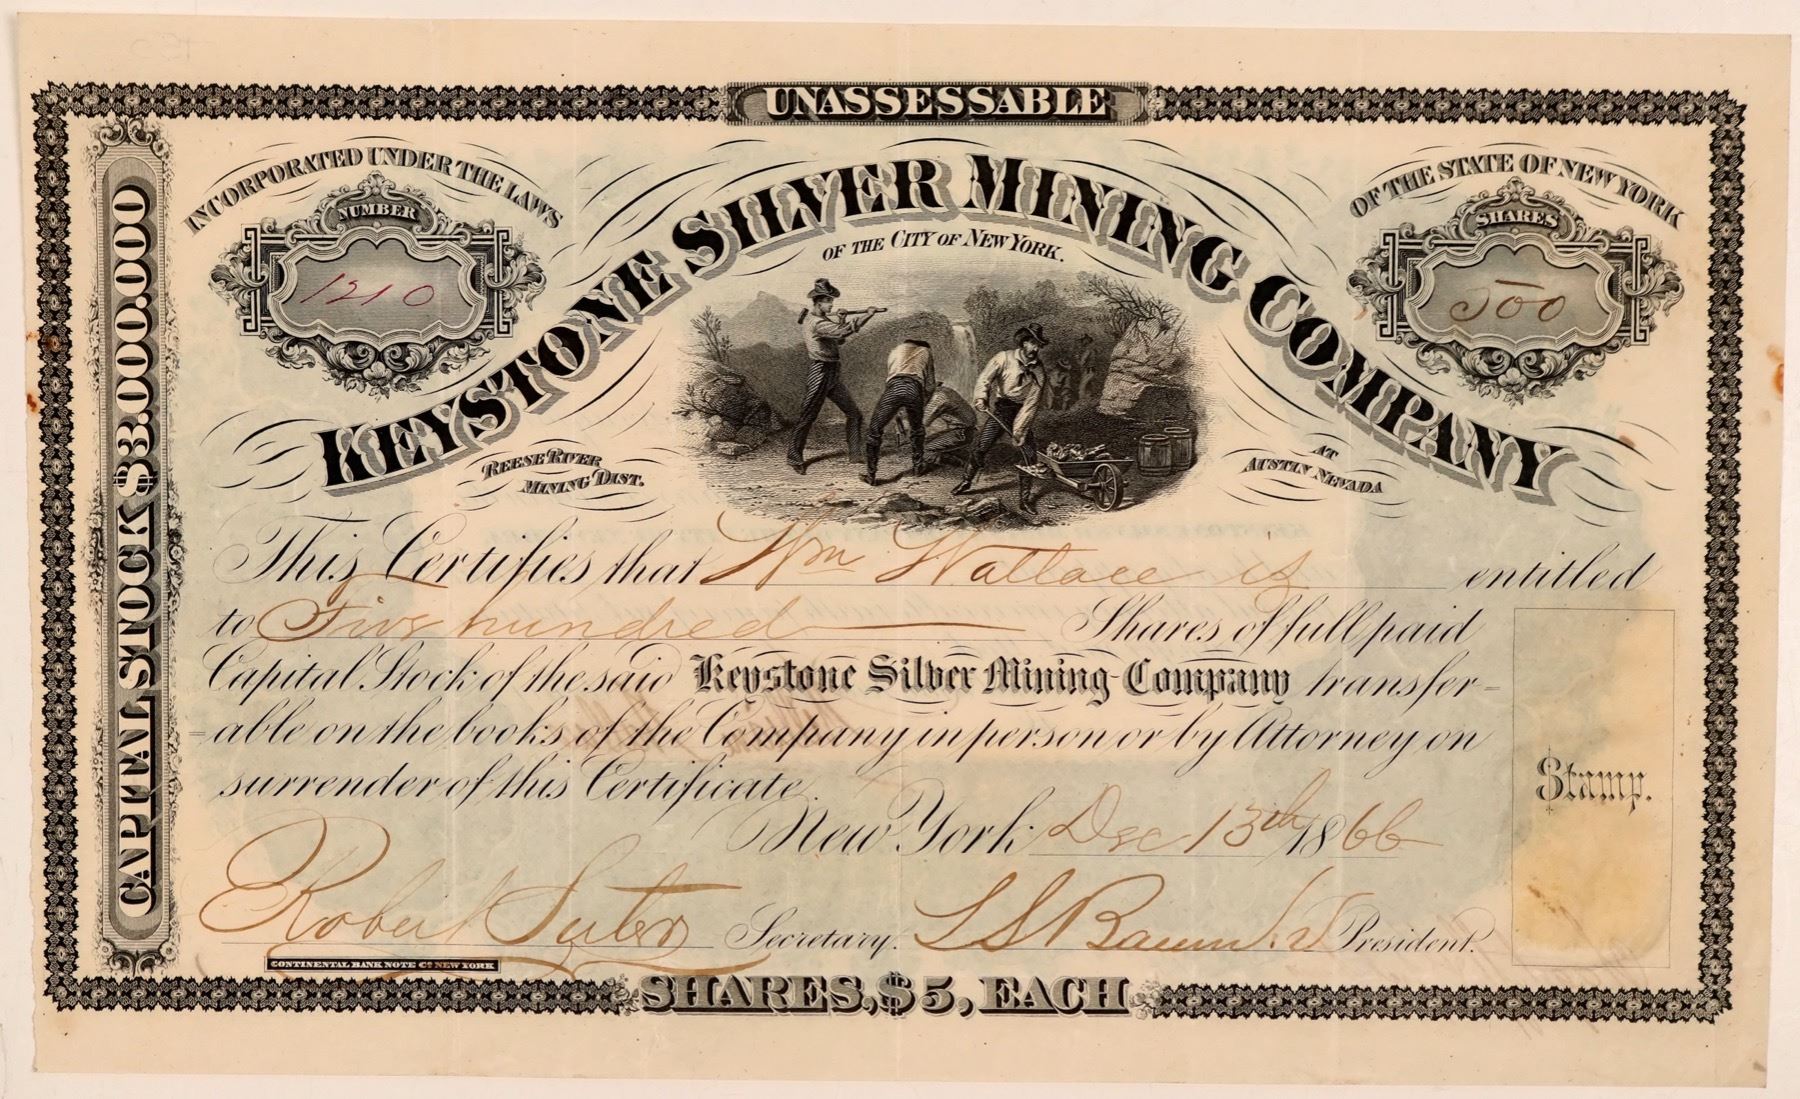 UNASSESSABLE
INCORPORATED UNDER THE LAWS
OF THE STATE OF NEW YORK
NUMBER
1210
SHARES
500
KEYSTONE SILVER MINING COMPANY
OF THE CITY OF NEW YORK.
REESE RIVER
MINING DIST.
AT
AUSTIN NEVADA
CAPITAL STOCK $3.000.000
This Certifies that Wm Wallace is entitled
to Five hundred Shares of full paid
Capital Stock of the said Keystone Silver Mining Company transfer=
=able on the books of the Company in person or by Attorney on
surrender of this Certificate.
New York Dec 13th 1866
Stamp.
Robert Suter Secretary. L S President.
CONTINENTAL BANK NOTE CO NEW YORK
SHARES, $5, EACH